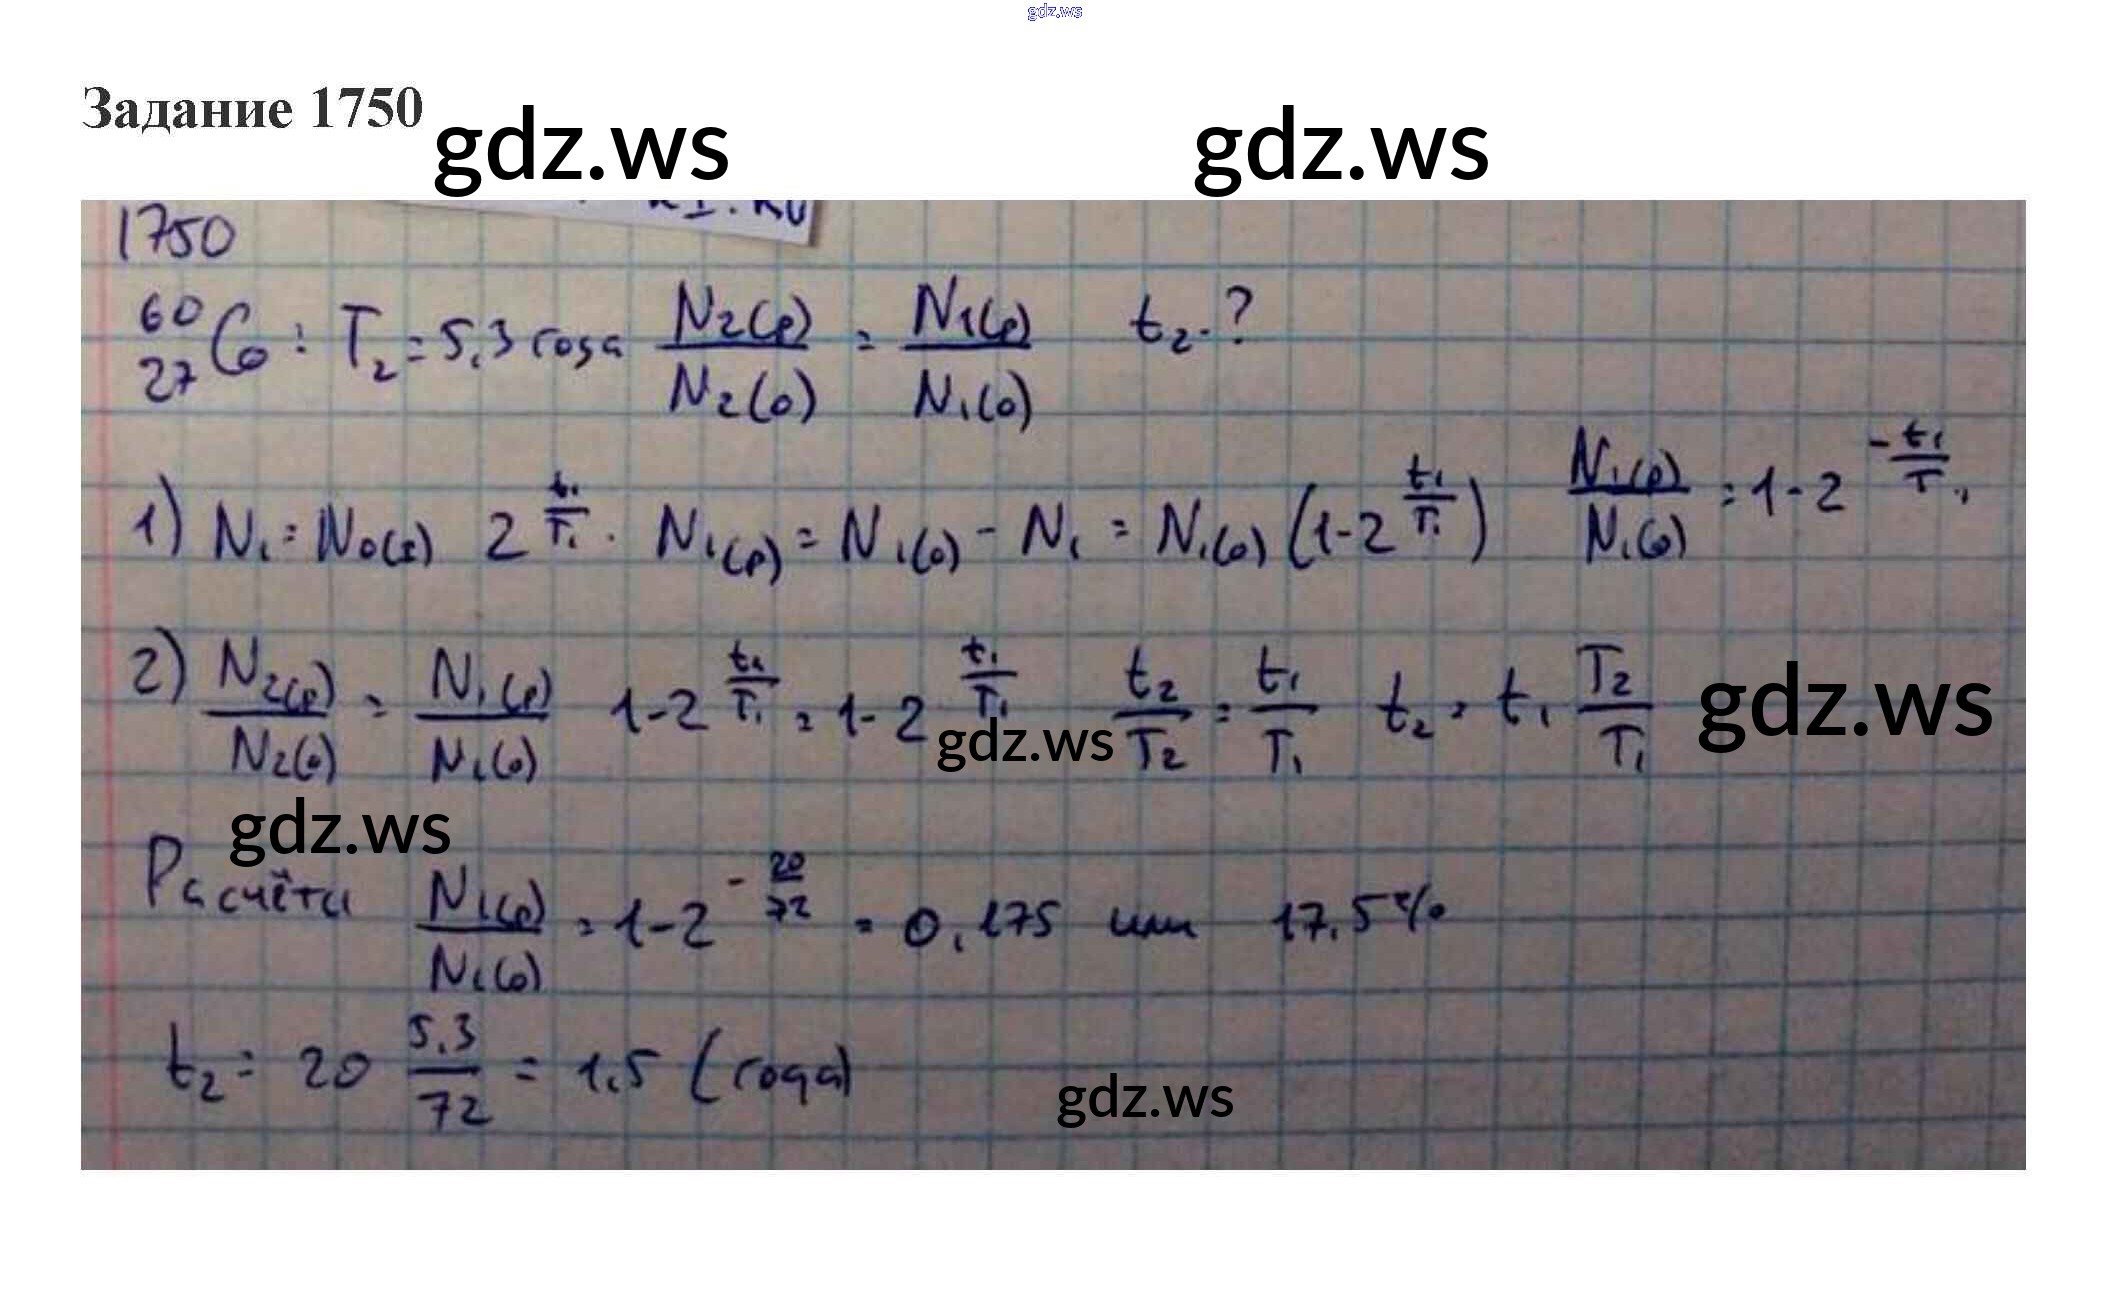 gdz.ws
Задание 1750
gdz.ws gdz.ws
1750
⁶⁰₂₇Co : T₂ = 5,3 года N₂(р)/N₂(о) = N₁(р)/N₁(о) t₂ - ?
1) N₁ = N₀(1) 2^(t₁/T₁) . N₁(р) = N₁(о) - N₁ = N₁(о) (1-2^(t₁/T₁)) N₁(р)/N₁(о) = 1-2^(-t₁/T₁)
2) N₂(р)/N₂(о) = N₁(р)/N₁(о) 1-2^(t₂/T₁) = 1-2^(t₁/T₁) t₂/T₂ = t₁/T₁ t₂ = t₁ T₂/T₁ gdz.ws
gdz.ws
gdz.ws
Расчёты N₁(р)/N₁(о) = 1-2^(-20/72) = 0,175 или 17,5%
t₂ = 20 5,3/72 = 1,5 (года)
gdz.ws